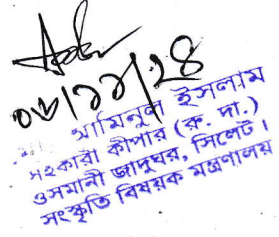 ০৬/১১/২৪
আমিনুল ইসলাম
সহকারী কীপার (রু. দা.)
ওসমানী জাদুঘর, সিলেট।
সংস্কৃতি বিষয়ক মন্ত্রণালয়